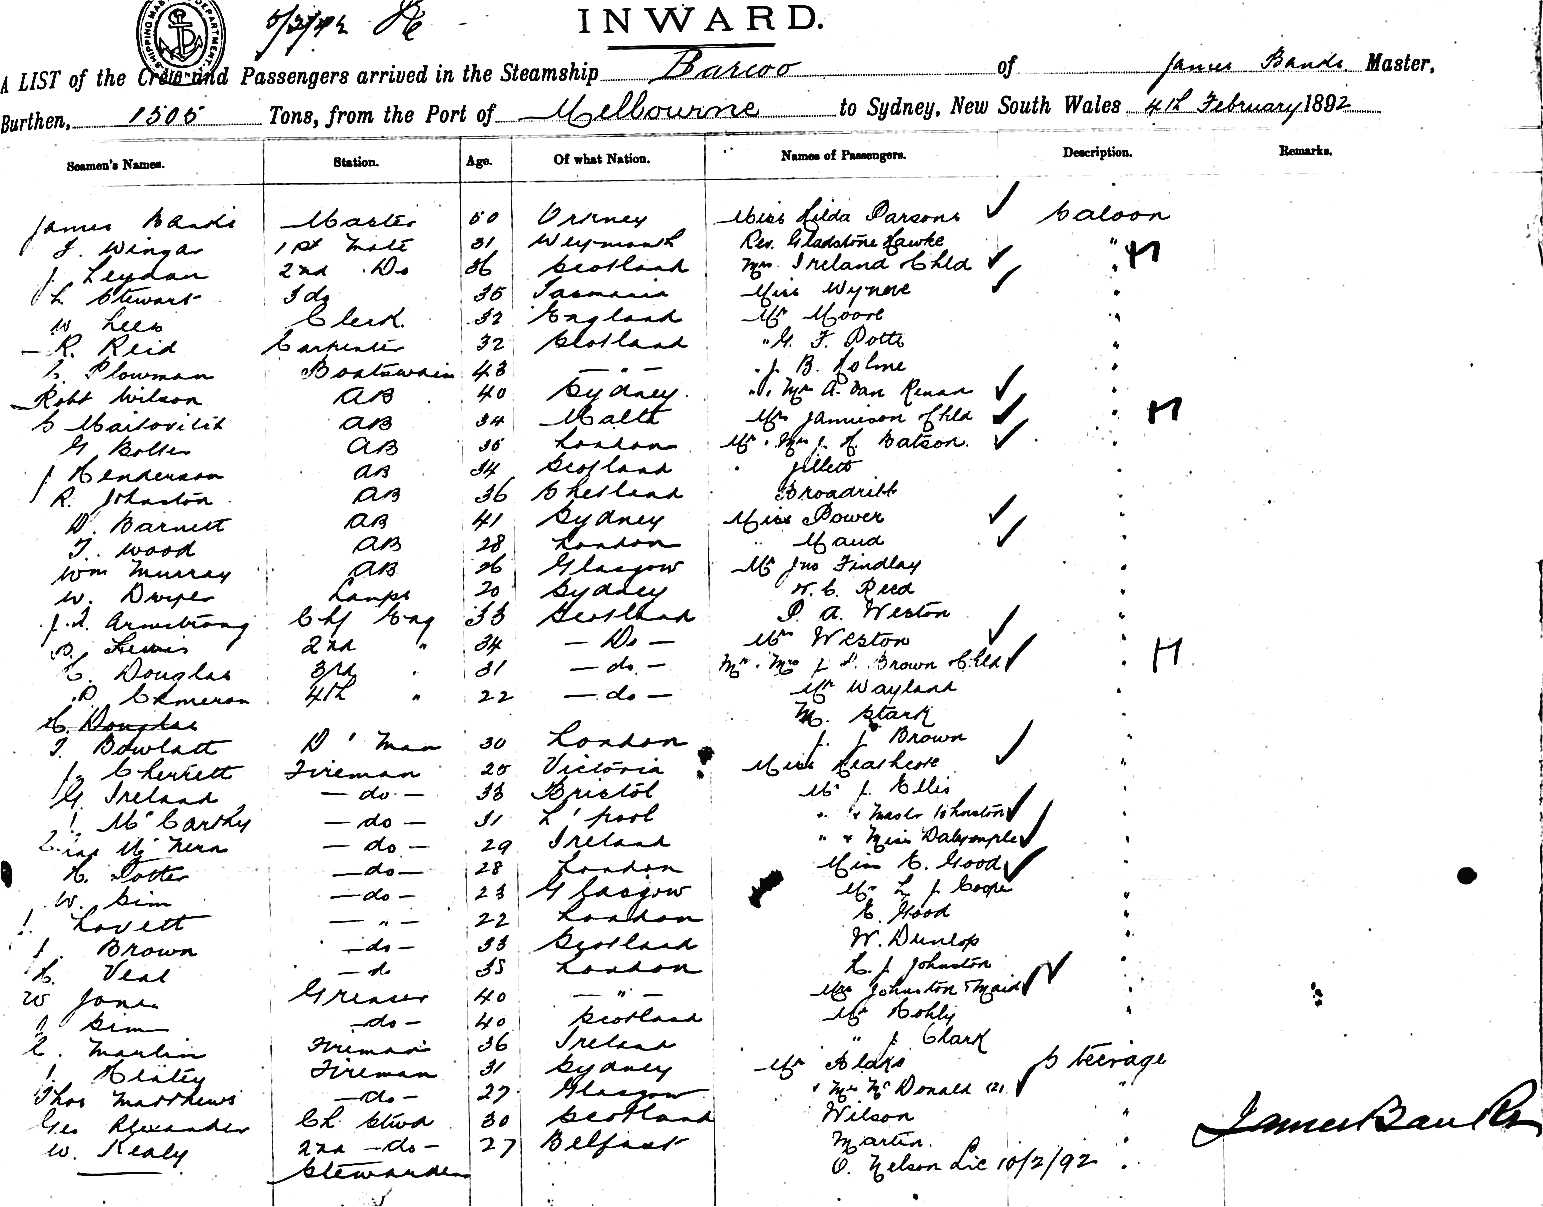 SHIPPING MASTER'S DEPARTMENT
5/2/92
INWARD.
A LIST of the Crew and Passengers arrived in the Steamship Barcoo of James Banks Master,
Burthen, 1505 Tons, from the Port of Melbourne to Sydney, New South Wales 4th February 1892
Seamen's Names. Station. Age. Of what Nation. Names of Passengers. Description. Remarks.
James Banks Master 50 Orkney Miss Hilda Parsons ✓ Saloon
1st Mate 31 Weymouth Rev. Gladstone Hawke " H
J. Leydan 2nd Do 36 Scotland Mrs Ireland & Chld ✓ "
Stewart 3 do 35 Tasmania Miss Wynne ✓ "
W Lees Clerk 32 England Mr Moore "
R. Reid Carpenter 32 Scotland " G. F. Potts "
Plowman Boatswain 43 — " — " J. B. Holme "
Robt Wilson AB 40 Sydney " Mrs A. Van Renan ✓ "
AB 34 Malta Mrs Jamieson & Chld ✓ " H
G Bolter AB 35 London Mr & Mrs J. H. Batson ✓ "
J Henderson AB 34 Scotland " Jillett "
R. Johnston AB 36 Shetland Broadribb "
D. Barnett AB 41 Sydney Miss Power ✓ "
T. Wood AB 28 London " Maud ✓ "
Wm Murray AB 26 Glasgow Mr Jno Findlay "
W. Dwyer Lamps 20 Sydney W. C. Reed "
Armstrong Chf Eng 33 Scotland P. A. Weston "
Lewis 2nd " 34 — Do — Mrs Weston ✓ "
C. Douglas 3rd " 31 — do — Mr & Mrs Brown & Chld ✓ " H
D. Cameron 4th " 22 — do — Mr Wayland "
H. Douglas M. Stark "
T. Bowlatt D' Man 30 London J. J. Brown "
Fireman 25 Victoria Miss Heathcote ✓ "
G. Ireland — do — 33 Bristol Mr J. Ellis "
McCarthy — do — 31 L'pool " & Mastr Johnston ✓ "
— do — 29 Ireland " & Miss Dalrymple ✓ "
H. Potter — do — 28 London Miss E. Good ✓ "
W. Sim — do — 23 Glasgow Mr L. J. Cooper "
Lovett — " — 22 London E. Good "
Brown — do — 33 Scotland W. Dunlop "
H. Veal — do 35 London H. J. Johnston "
W Jones Greaser 40 — " — Mrs Johnston & Maid ✓ "
Sim — do — 40 Scotland Mr Cohly "
Martin Fireman 36 Ireland " J. Clark "
Fireman 31 Sydney Mr Blake Steerage
Thos Matthews — do — 27 Glasgow & Mrs McDonald (2) ✓ "
Geo Alexander Ch Stwd 30 Scotland Wilson "
W. Kealy 2nd — do — 27 Belfast Martin "
Stewardess O. Nelson Lic 10/2/92 "
James Banks